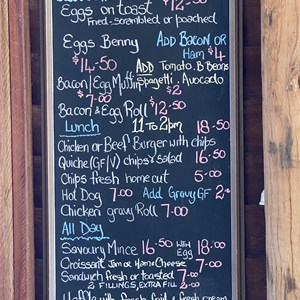 Eggs on toast $12-50
Fried-scrambled or poached
Eggs Benny ADD BACON OR
$14-50 Ham $4
ADD Tomato, B. Beans
Bacon/Egg Muffin Spagetti, Avocado
$7-00 $2
Bacon & Egg Roll $12-50
Lunch 11 To 2pm 18-50
Chicken or Beef Burger with chips
Quiche (GF/V) chips & salad 16-50
Chips fresh home cut 5-00
Hot Dog 7-00 Add Gravy GF 2-
Chicken gravy Roll 7-00
All Day
Savoury Mince 16-50 with Egg 18-00
Croissant Jam or Ham & Cheese 7-00
Sandwich fresh or toasted 7-00
2 FILLINGS, EXTRA FILL 2-
Waffle with fresh fruit & fresh cream